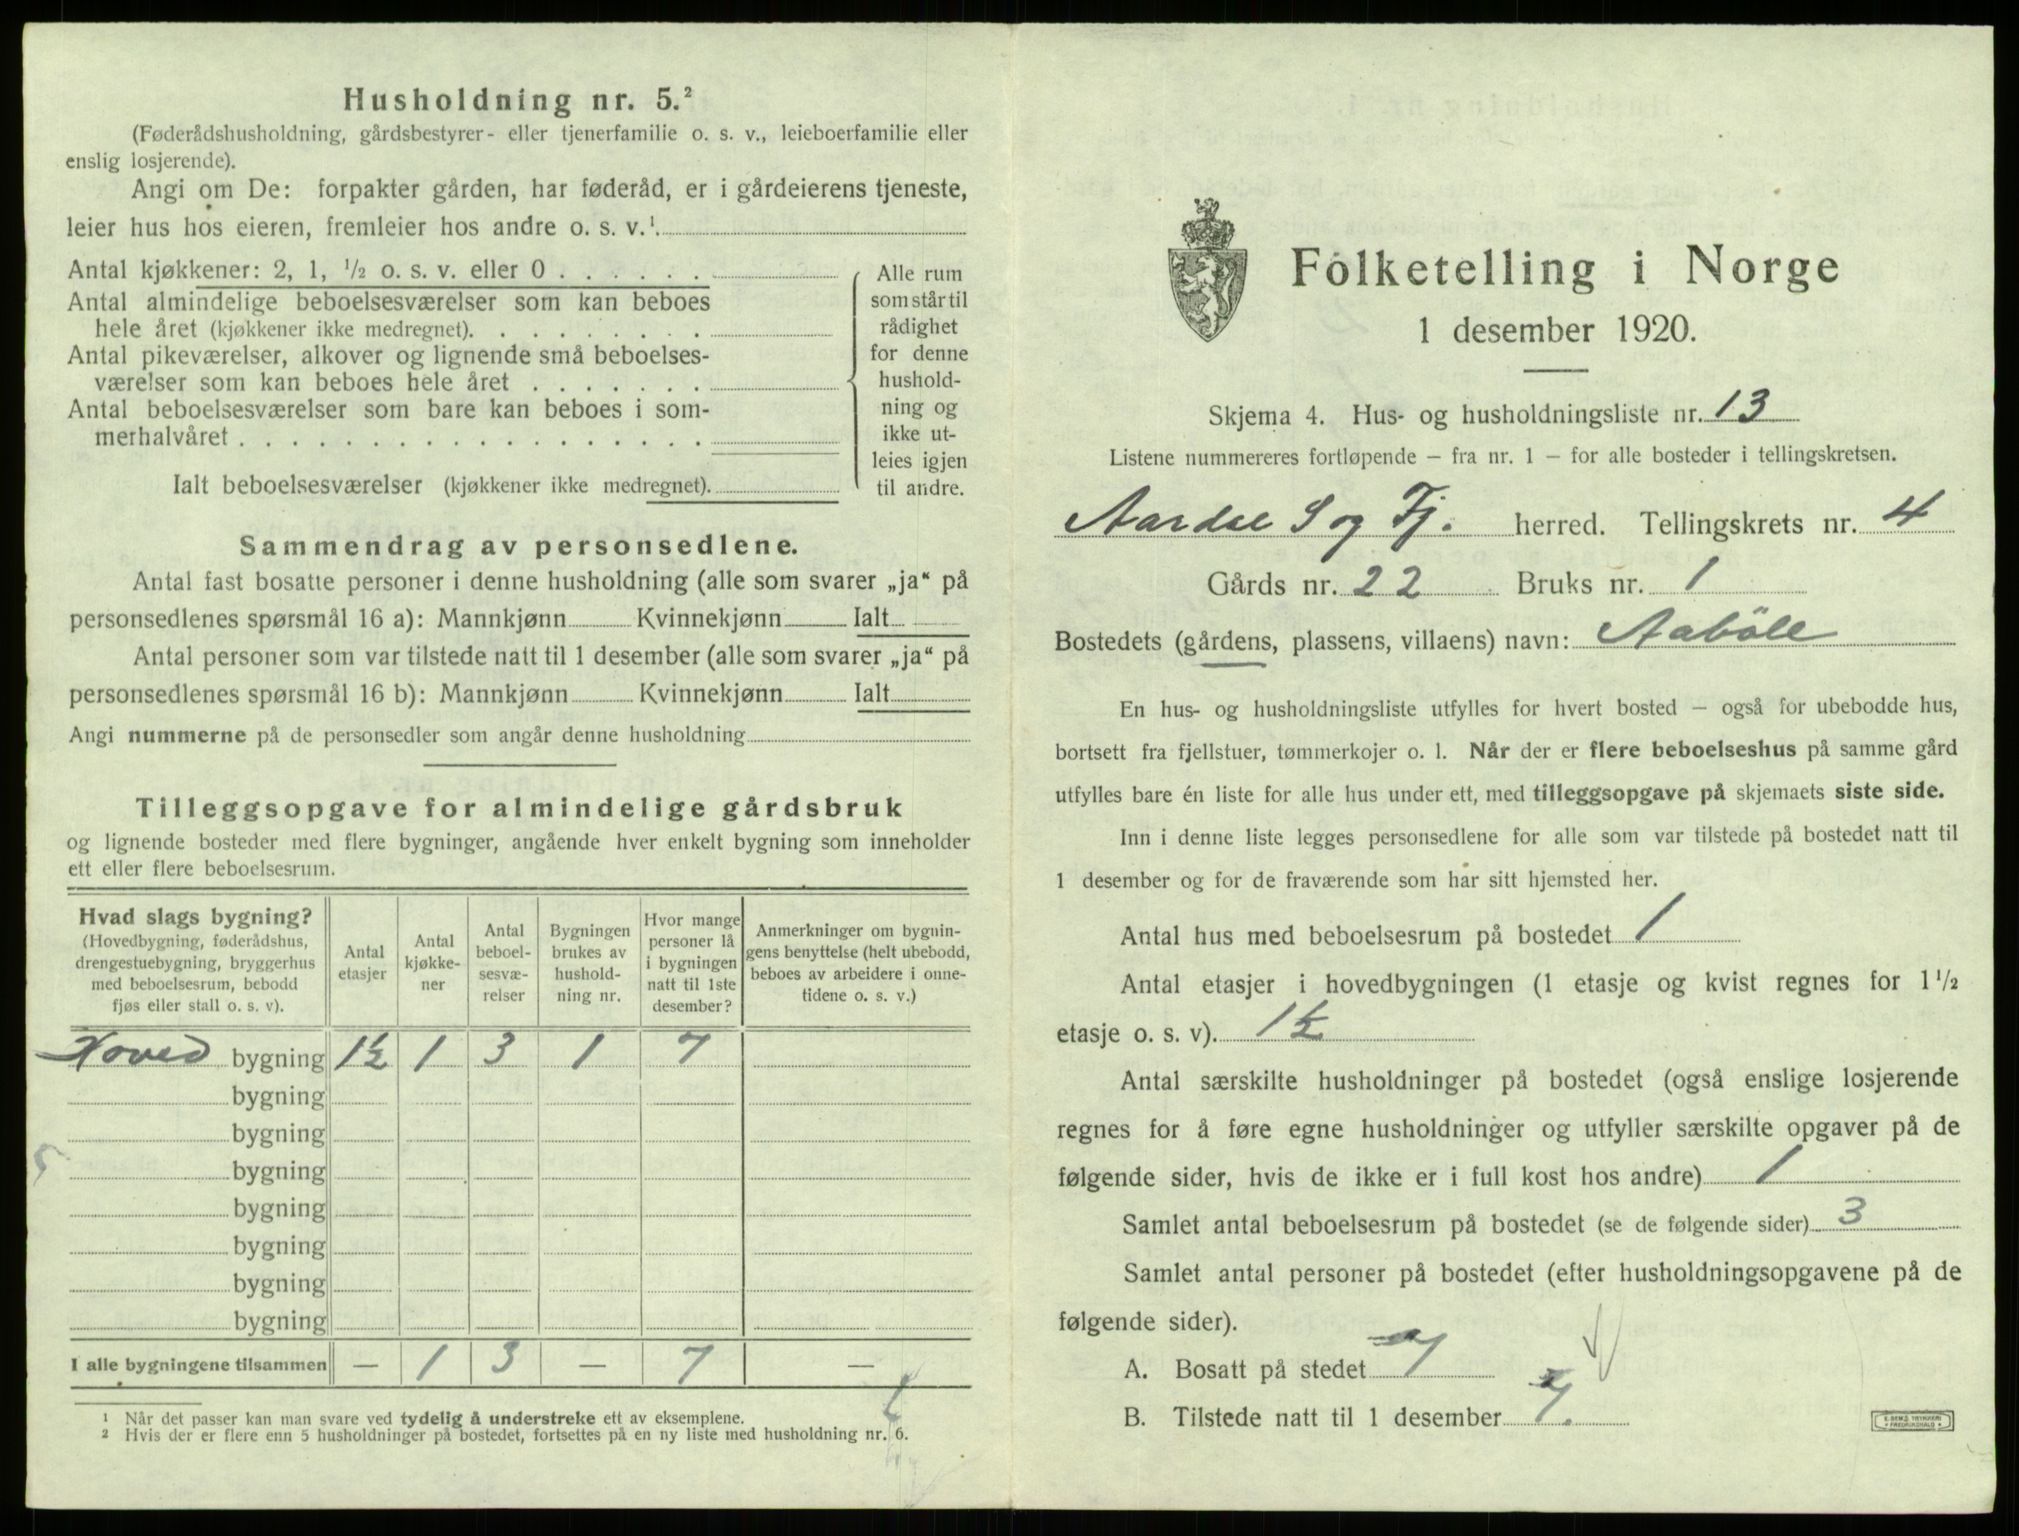 Husholdning nr. 5.²
(Føderådshusholdning, gårdsbestyrer- eller tjenerfamilie o. s. v., leieboerfamilie eller
enslig losjerende).
Angi om De: forpakter gården, har føderåd, er i gårdeierens tjeneste,
leier hus hos eieren, fremleier hos andre o. s. v.¹.
Antal kjøkkener: 2, 1, ½ o. s. v. eller 0 . . . . . .
Antal almindelige beboelsesværelser som kan beboes
hele året (kjøkkener ikke medregnet). . . . . . . . .
Antal pikeværelser, alkover og lignende små beboelses-
værelser som kan beboes hele året . . . . . . .
Antal beboelsesværelser som bare kan beboes i som-
merhalvåret . . . . . . . . . . . . . . . . . .
Ialt beboelsesværelser (kjøkkener ikke medregnet).
Alle rum
som står til
rådighet
for denne
hushold-
ning og
ikke ut-
leies igjen
til andre.
Sammendrag av personsedlene.
Antal fast bosatte personer i denne husholdning (alle som svarer „ja“ på
personsedlenes spørsmål 16 a): Mannkjønn Kvinnekjønn Ialt
Antal personer som var tilstede natt til 1 desember (alle som svarer „ja“ på
personsedlenes spørsmål 16 b): Mannkjønn Kvinnekjønn Ialt
Angi nummerne på de personsedler som angår denne husholdning
Tilleggsopgave for almindelige gårdsbruk
og lignende bosteder med flere bygninger, angående hver enkelt bygning som inneholder
ett eller flere beboelsesrum.
Hvad slags bygning?
(Hovedbygning, føderådshus,
drengestuebygning, bryggerhus
med beboelsesrum, bebodd
fjøs eller stall o. s. v).
Antal
etasjer
Antal
kjøkke-
ner
Antal
beboel-
sesvæ-
relser
Bygningen
brukes av
hushold-
ning nr.
Hvor mange
personer lå
i bygningen
natt til 1ste
desember?
Anmerkninger om bygnin-
gens benyttelse (helt ubebodd,
beboes av arbeidere i onne-
tidene o. s. v.)
Hoved bygning 1½ 1 3 1 7
bygning
bygning
bygning
bygning
bygning
bygning
bygning
I alle bygningene tilsammen — 1 3 — 7 —
¹ Når det passer kan man svare ved tydelig å understreke ett av eksemplene.
² Hvis der er flere enn 5 husholdninger på bostedet, fortsettes på en ny liste med husholdning nr. 6.
Folketelling i Norge
1 desember 1920.
Skjema 4. Hus- og husholdningsliste nr. 13
Listene nummereres fortløpende – fra nr. 1 – for alle bosteder i tellingskretsen.
Aardal S og Fj. herred. Tellingskrets nr. 4
Gårds nr. 22 Bruks nr. 1
Bostedets (gårdens, plassens, villaens) navn: Aabøle
En hus- og husholdningsliste utfylles for hvert bosted – også for ubebodde hus,
bortsett fra fjellstuer, tømmerkojer o. l. Når der er flere beboelseshus på samme gård
utfylles bare én liste for alle hus under ett, med tilleggsopgave på skjemaets siste side.
Inn i denne liste legges personsedlene for alle som var tilstede på bostedet natt til
1 desember og for de fraværende som har sitt hjemsted her.
Antal hus med beboelsesrum på bostedet 1
Antal etasjer i hovedbygningen (1 etasje og kvist regnes for 1½
etasje o. s. v). 1½
Antal særskilte husholdninger på bostedet (også enslige losjerende
regnes for å føre egne husholdninger og utfyller særskilte opgaver på de
følgende sider, hvis de ikke er i full kost hos andre) 1
Samlet antal beboelsesrum på bostedet (se de følgende sider) 3
Samlet antal personer på bostedet (efter husholdningsopgavene på de
følgende sider).
A. Bosatt på stedet 7
B. Tilstede natt til 1 desember 7.
E. SEMS TRYKKERI
FREDRIKSHALD